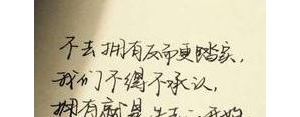 不去拥有反而更踏实，
我们不得不承认，
拥有就是失去的开始